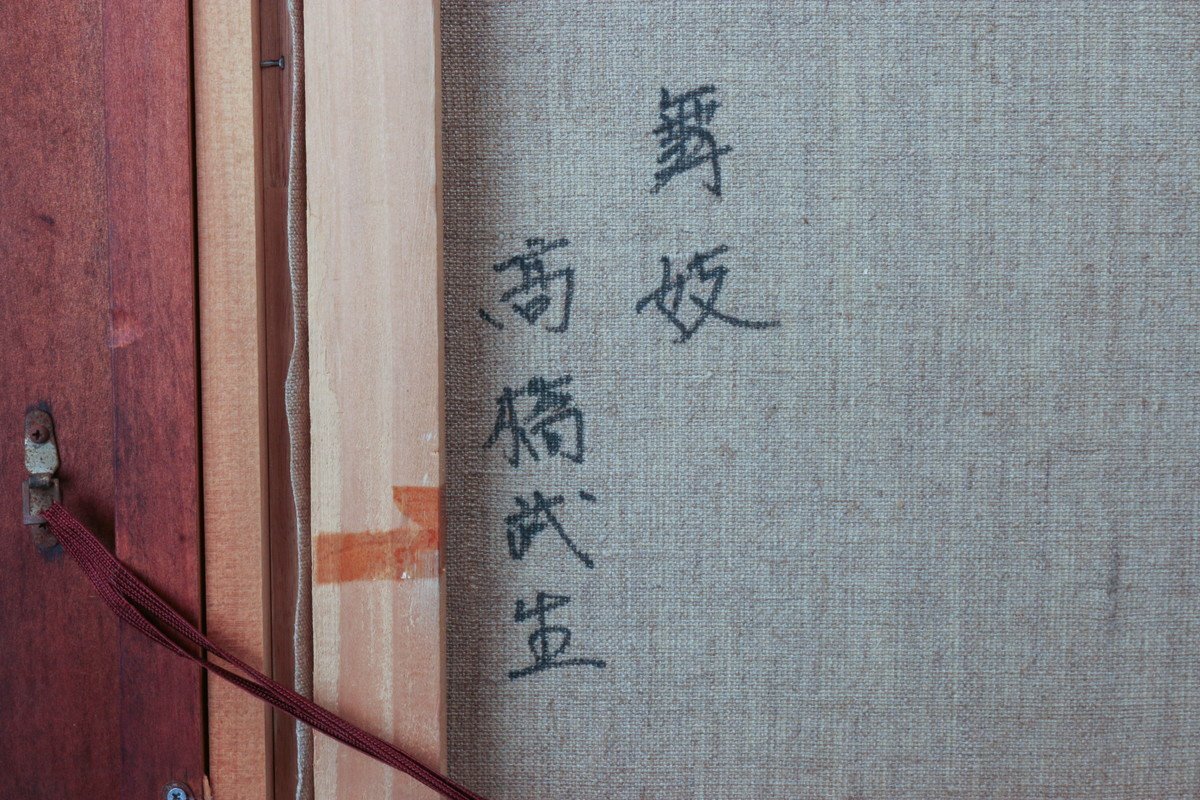 舞妓
高橋武生